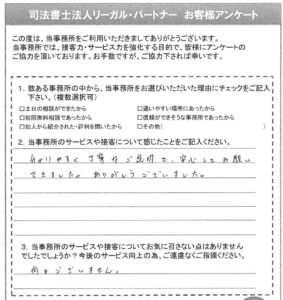 司法書士法人リーガル・パートナー　お客様アンケート
この度は、当事務所をご利用いただきましてありがとうございます。
当事務所では、接客力・サービス力を強化する目的で、皆様にアンケートの
ご協力を頂いております。お手数ですが、ご協力下されば幸いです。
1．数ある事務所の中から、当事務所をお選びいただいた理由にチェックをご記入
下さい。（複数選択可）
□土日の相談ができたから　□通いやすい場所にあったから
□初回無料相談であったから　□信頼ができそうな事務所であったから
□知人から紹介された・評判を聞いたから　□その他（　　）
2．当事務所のサービスや接客について感じたことをご記入ください。
わかりやすく丁寧なご説明で、安心してお願い
できました。ありがとうございました。
3．当事務所のサービスや接客についてお気に召さない点はありません
でしたでしょうか？今後のサービス向上の為、ご遠慮なくご指摘ください。
何もございません。